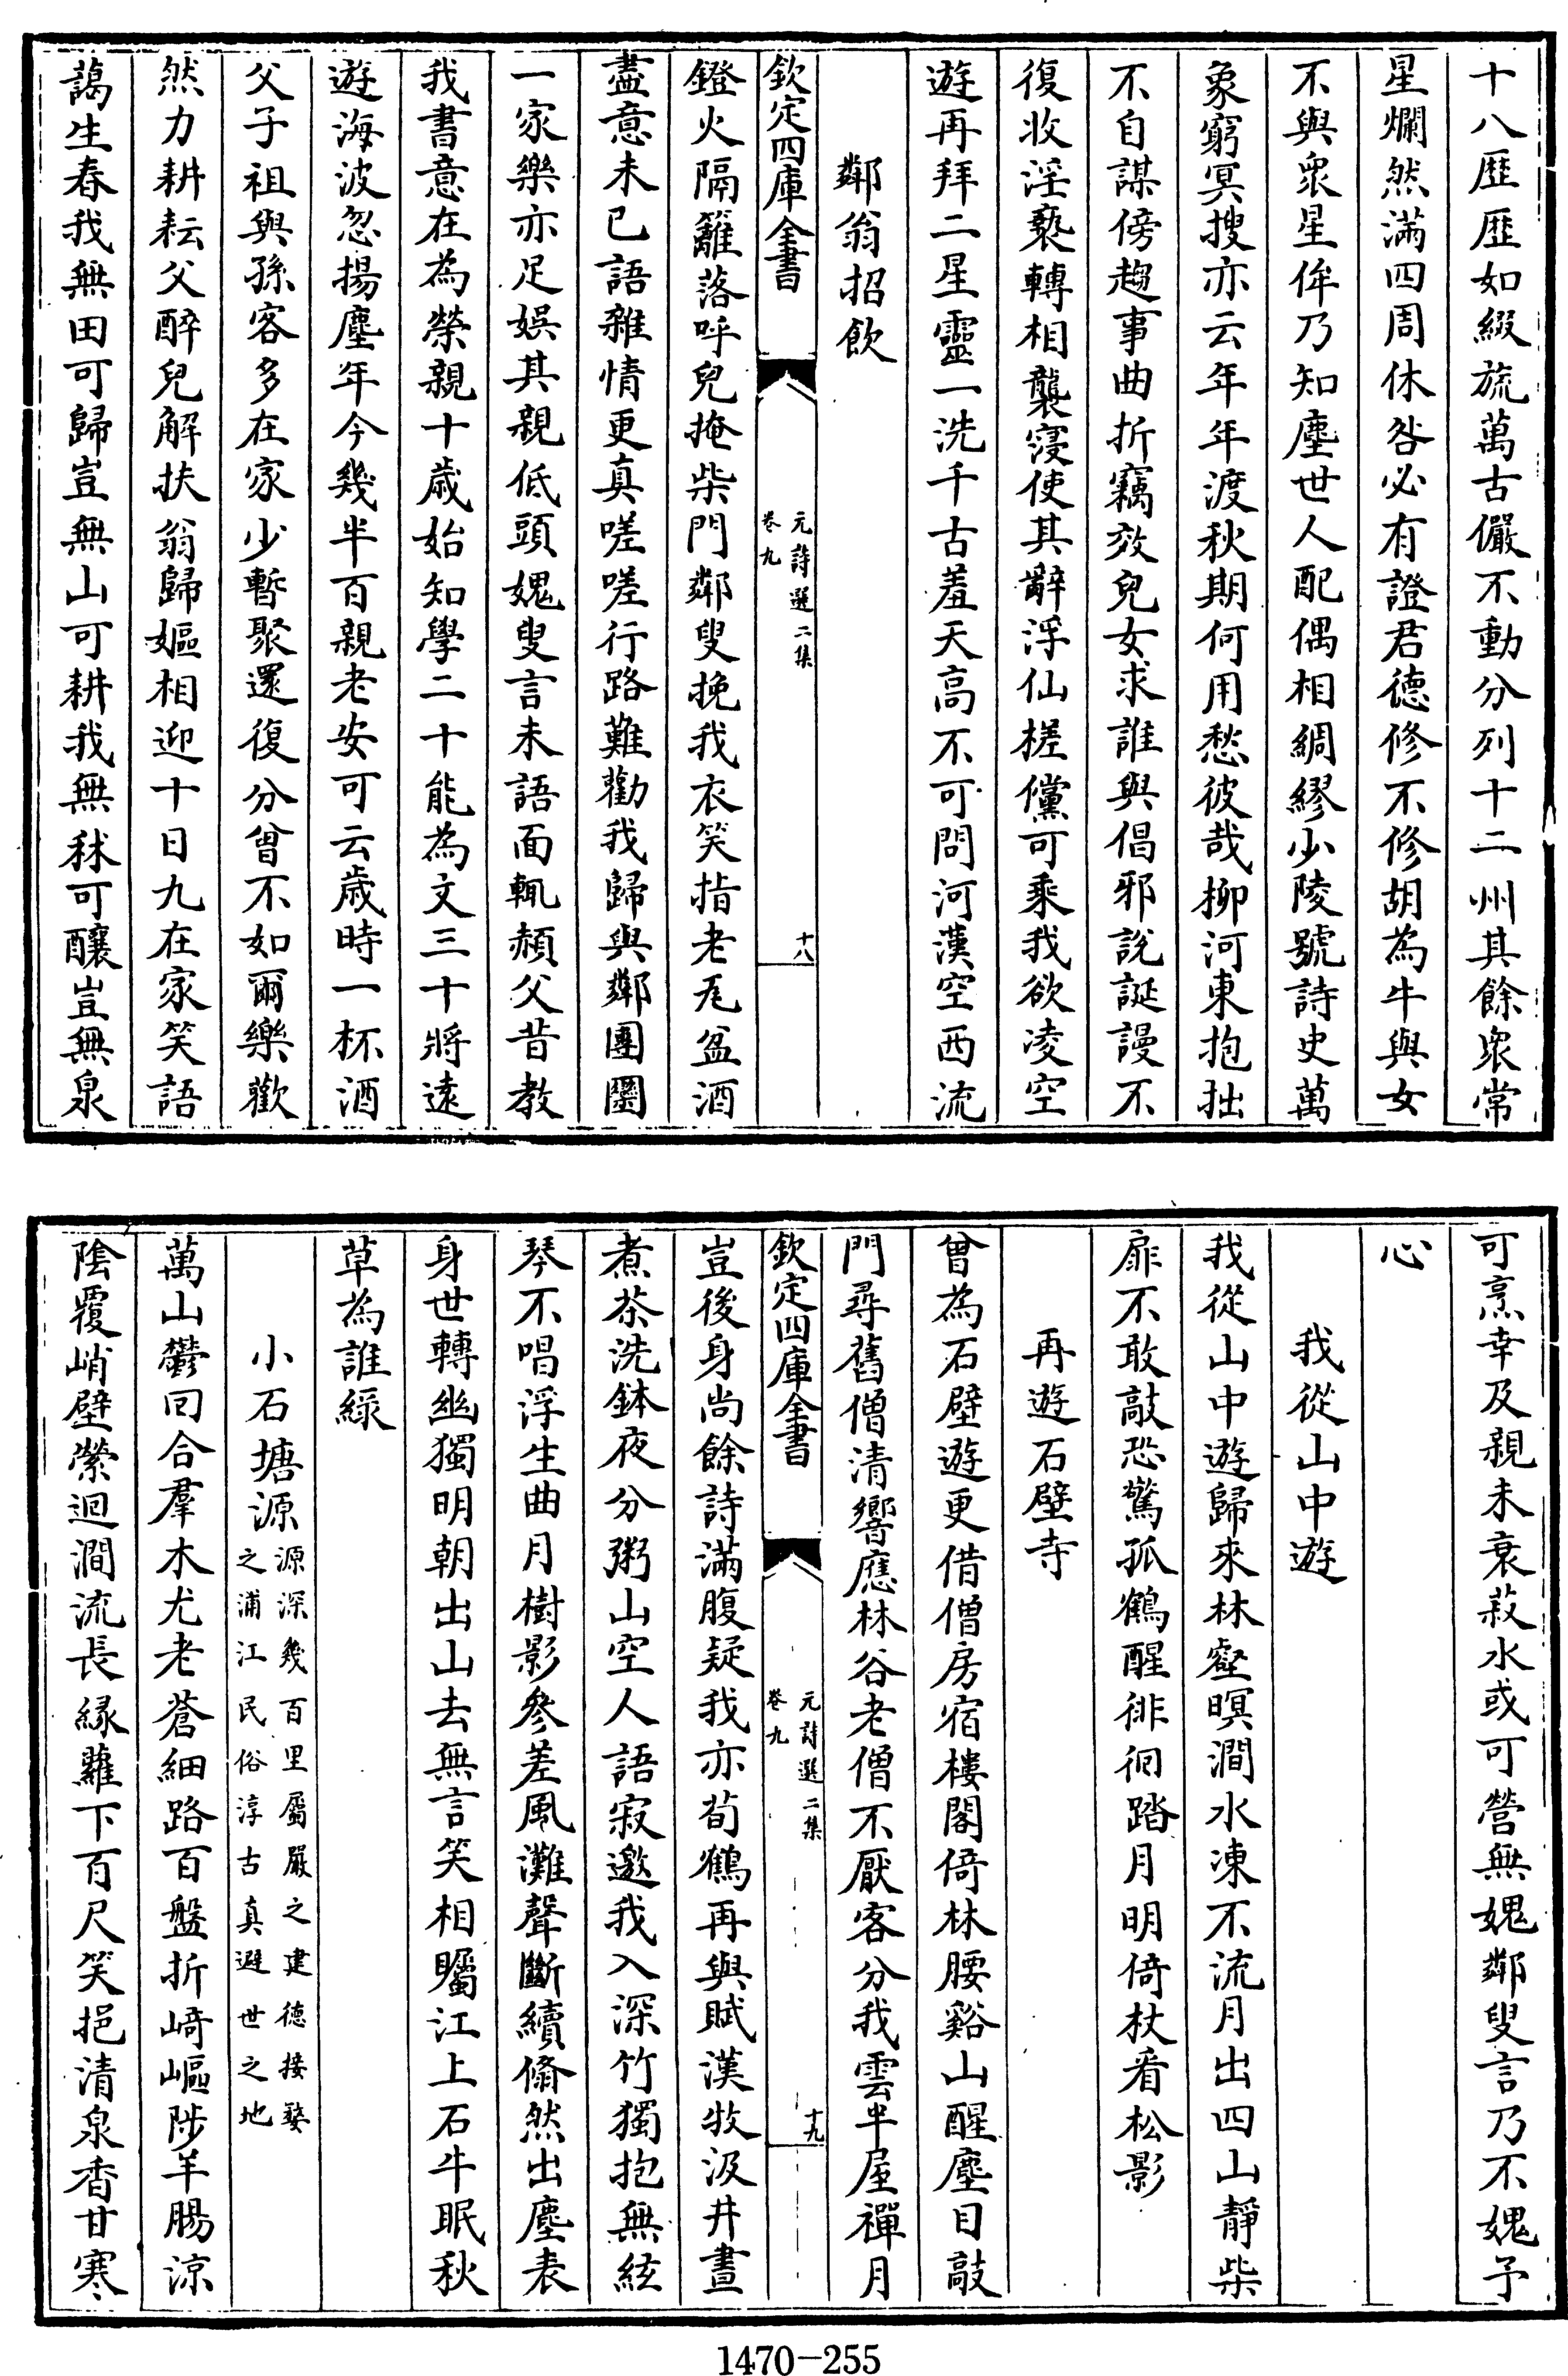 十八歴歴如綴旒萬古儼不動分列十二州其餘衆常
星爛然滿四周休咎必有證君德修不修胡為牛與女
不與衆星侔乃知塵世人配偶相綢繆少陵號詩史萬
象窮冥搜亦云年年渡秋期何用愁彼哉柳河東抱拙
不自謀傍趨事曲折竊效兒女求誰與倡邪說誕謾不
復收淫褻轉相襲寖使其辭浮仙槎儻可乘我欲凌空
遊再拜二星靈一洗千古羞天高不可問河漢空西流
鄰翁招飲
欽定四庫全書
元詩選二集
卷九
十八
鐙火隔籬落呼兒掩柴門鄰叟挽我衣笑指老瓦盆酒
盡意未已語雜情更真嗟嗟行路難勸我歸與鄰團圞
一家樂亦足娛其親低頭媿叟言未語面輒頳父昔教
我書意在為榮親十歲始知學二十能為文三十將遠
遊海波忽揚塵年今幾半百親老安可云歲時一杯酒
父子祖與孫客多在家少暫聚還復分曾不如爾樂歡
然力耕耘父醉兒解扶翁歸嫗相迎十日九在家笑語
藹生春我無田可歸豈無山可耕我無秫可釀豈無泉
可烹幸及親未衰菽水或可營無媿鄰叟言乃不媿予
心
我從山中遊
我從山中遊歸來林壑暝澗水凍不流月出四山靜柴
扉不敢敲恐驚孤鶴醒徘徊踏月明倚杖看松影
再遊石壁寺
曾為石壁遊更借僧房宿樓閣倚林腰谿山醒塵目敲
門尋舊僧清響應林谷老僧不厭客分我雲半屋禪月
欽定四庫全書
元詩選二集
卷九
十九
豈後身尚餘詩滿腹疑我亦荀鶴再與賦漢牧汲井晝
煮茶洗鉢夜分粥山空人語寂邀我入深竹獨抱無絃
琴不唱浮生曲月樹影參差風灘聲斷續翛然出塵表
身世轉幽獨明朝出山去無言笑相矚江上石牛眠秋
草為誰綠
小石塘源源深幾百里屬嚴之建德接婺
之浦江民俗淳古真避世之地
萬山鬱囘合羣木尤老蒼細路百盤折﨑嶇陟羊腸涼
陰覆峭壁縈迴澗流長緣蘿下百尺笑挹清泉香甘寒
1470-255